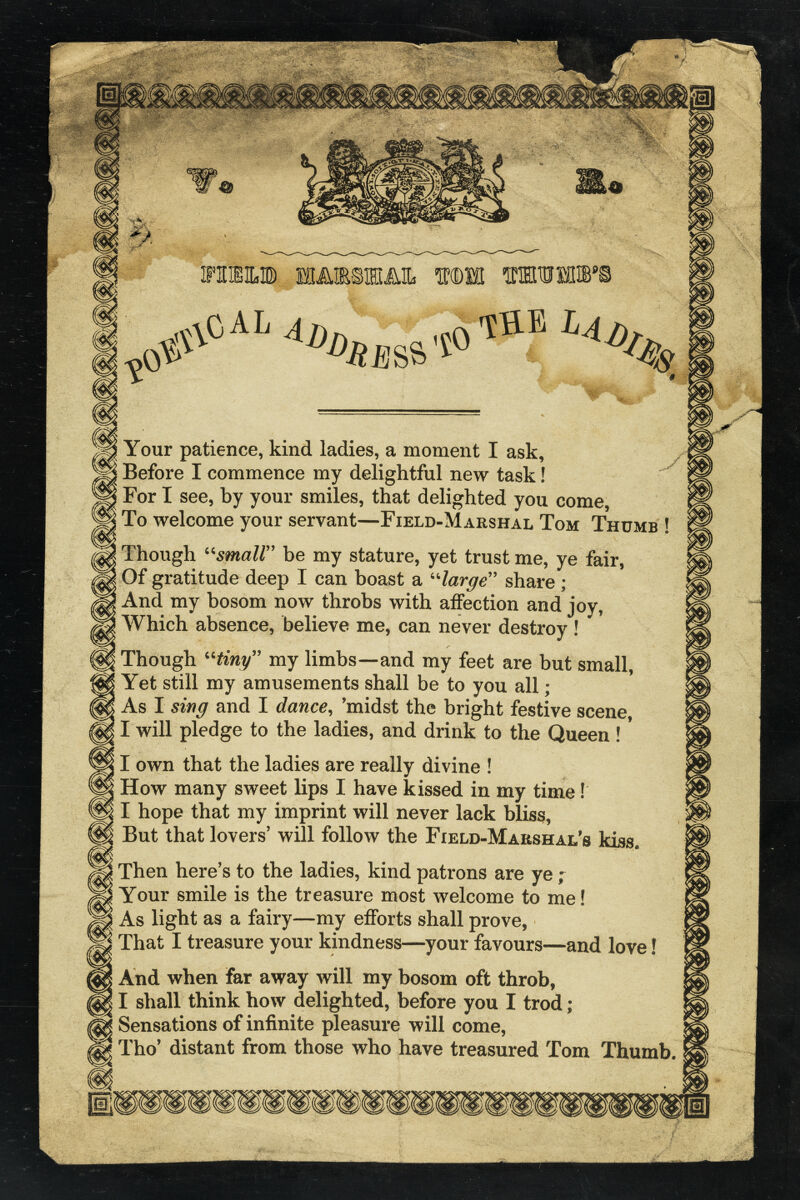 V. R.
FIELD MARSHAL TOM THUMB'S
POETICAL ADDRESS TO THE LADIES.
Your patience, kind ladies, a moment I ask,
Before I commence my delightful new task!
For I see, by your smiles, that delighted you come,
To welcome your servant—FIELD-MARSHAL TOM THUMB!
Though "small" be my stature, yet trust me, ye fair,
Of gratitude deep I can boast a "large" share;
And my bosom now throbs with affection and joy,
Which absence, believe me, can never destroy!
Though "tiny" my limbs—and my feet are but small,
Yet still my amusements shall be to you all;
As I sing and I dance, 'midst the bright festive scene,
I will pledge to the ladies, and drink to the Queen!
I own that the ladies are really divine!
How many sweet lips I have kissed in my time!
I hope that my imprint will never lack bliss,
But that lovers' will follow the FIELD-MARSHAL'S kiss.
Then here's to the ladies, kind patrons are ye;
Your smile is the treasure most welcome to me!
As light as a fairy—my efforts shall prove,
That I treasure your kindness—your favours—and love!
And when far away will my bosom oft throb,
I shall think how delighted, before you I trod;
Sensations of infinite pleasure will come,
Tho' distant from those who have treasured Tom Thumb.